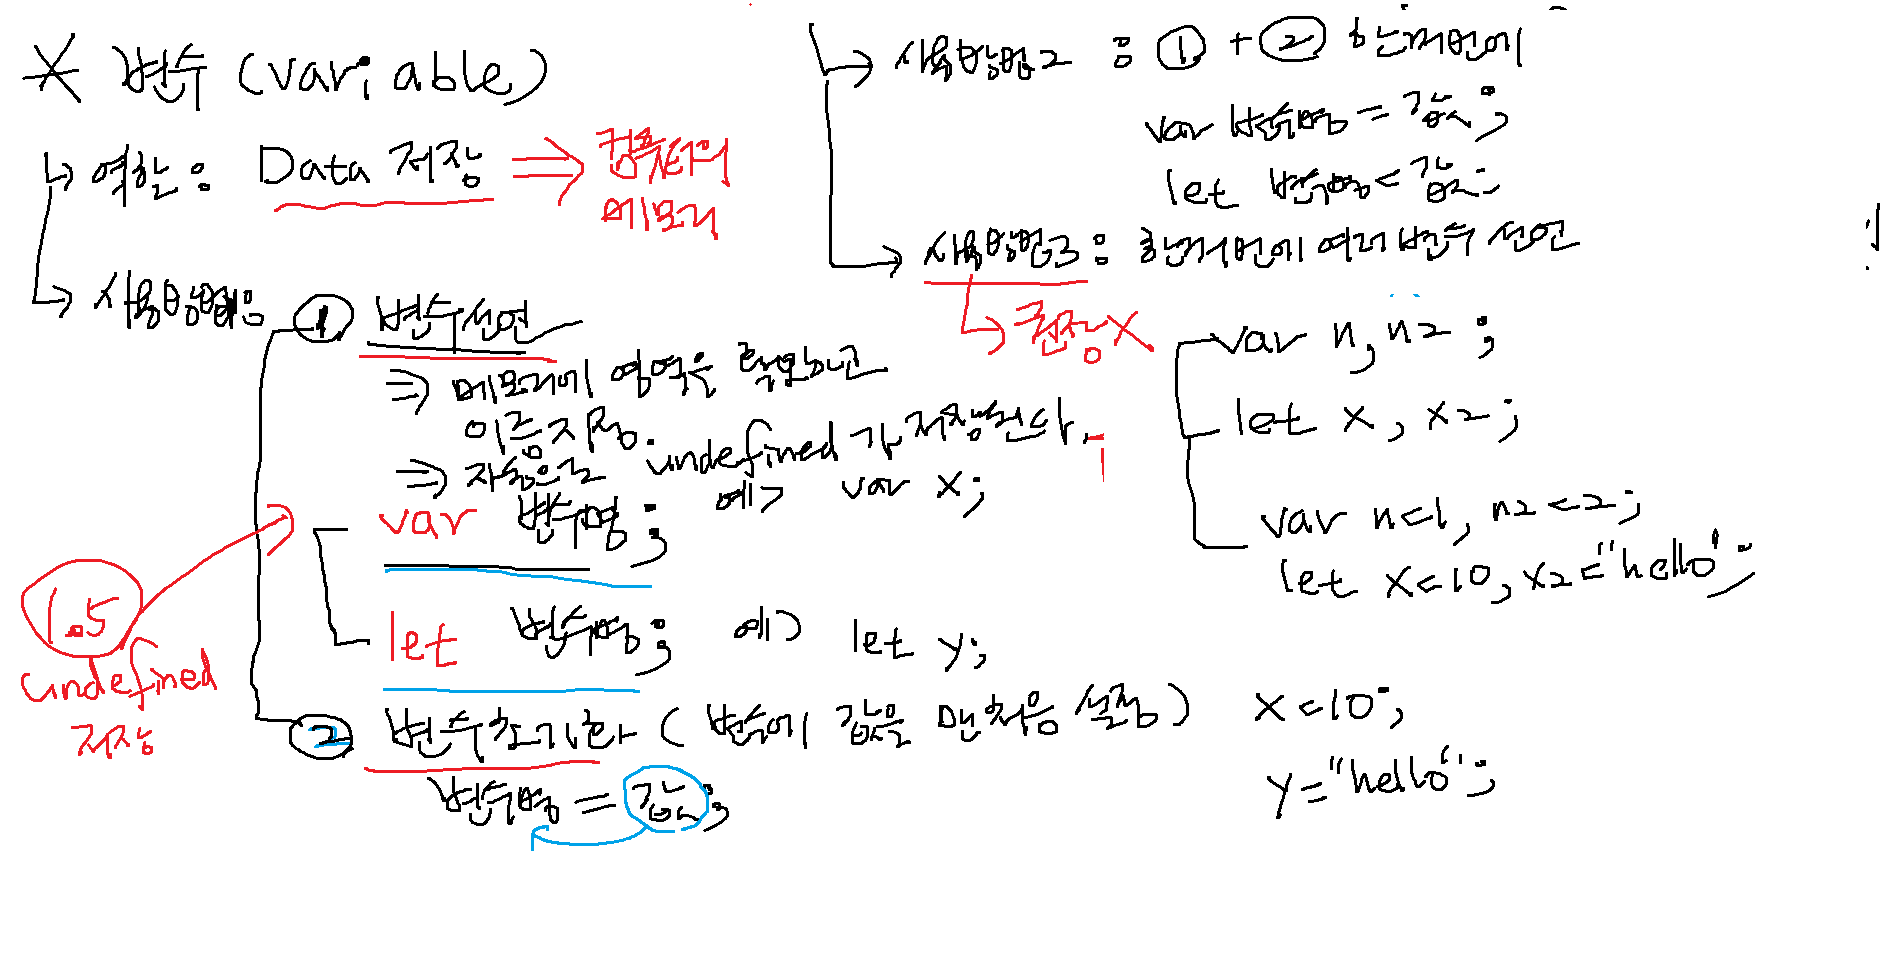 * 변수 (variable)
↳ 역할 : Data 저장 ⇒ 컴퓨터의
메모리
↳ 사용방법1 :
① 변수선언
⇒ 메모리에 영역을 확보하고
이름지정.
⇒ 자동으로 undefined가 저장된다.
var 변수명; 예> var x;
let 변수명; 예> let y;
1.5
undefined
저장
② 변수초기화 (변수에 값을 맨처음 설정) x=10;
변수명 = 값; y="hello";
↳ 사용방법2 : ① + ② 한꺼번에
var 변수명 = 값;
let 변수명 = 값;
↳ 사용방법3 : 한꺼번에 여러 변수 선언
→ 권장X
var n, n2 ;
let x, x2 ;
var n=1, n2=2;
let x=10, x2="hello";